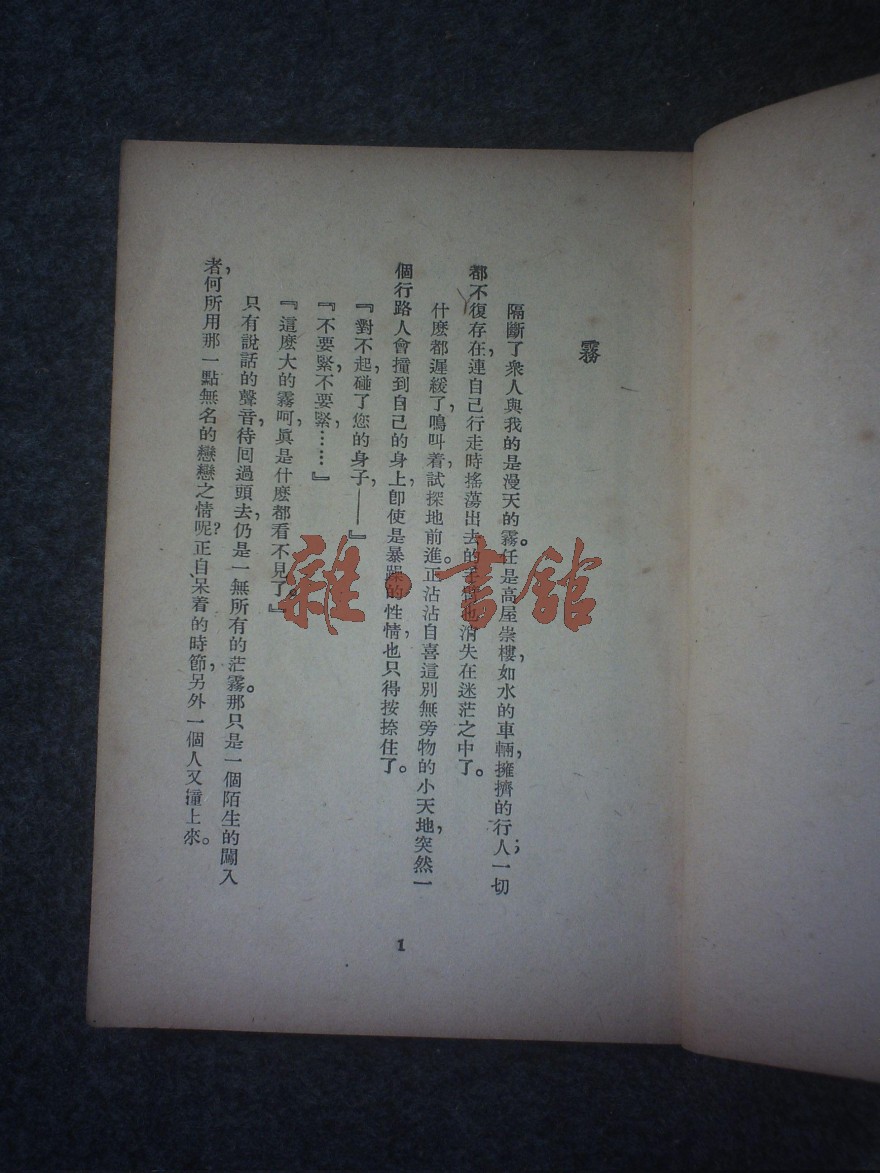 霧
隔斷了衆人與我的是漫天的霧。任是高屋崇樓,如水的車輛,擁擠的行人;一切
都不復存在,連自己行走時搖蕩出去的手臂也消失在迷茫之中了。
什麽都遲緩了,鳴叫着,試探地前進。正沾沾自喜這別無旁物的小天地,突然一
個行路人會撞到自己的身上,卽使是暴躁的性情,也只得按捺住了。
『對不起,碰了您的身子,——』
『不要緊,不要緊,……』
『這麽大的霧呵,眞是什麽都看不見了。』
只有說話的聲音,待回過頭去,仍是一無所有的茫霧。那只是一個陌生的闖入
者,何所用那一點無名的戀戀之情呢?正自呆着的時節,另外一個人又撞上來。
1
雜·書舘